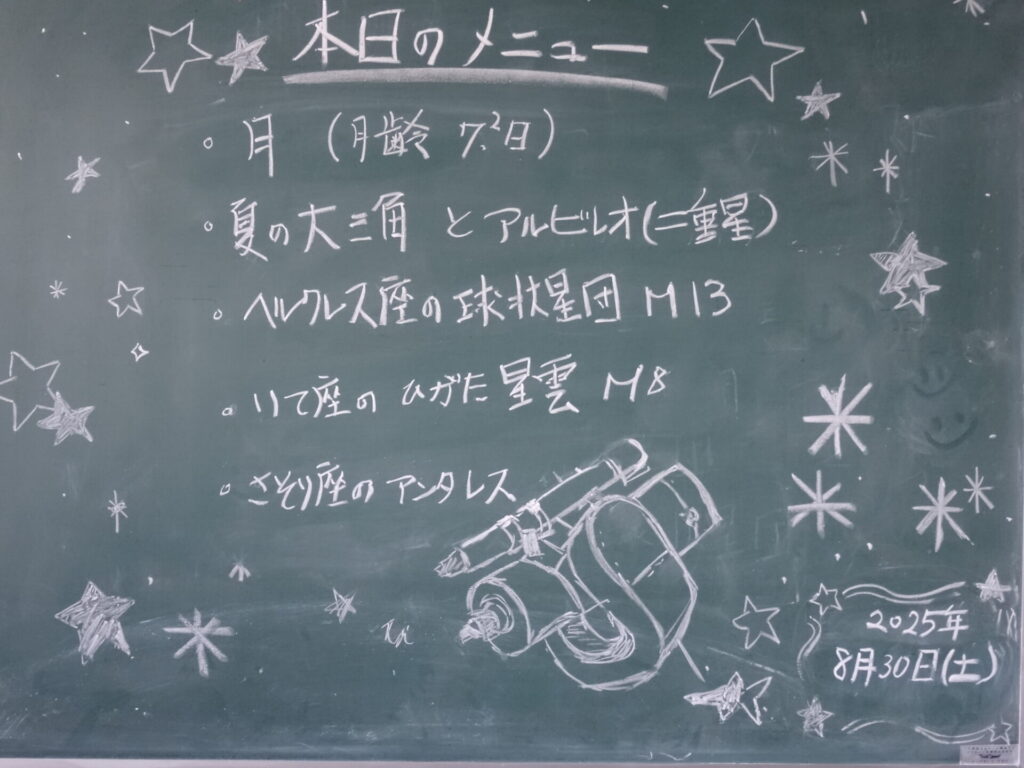 本日のメニュー
・月 (月齢 7.2日)
・夏の大三角 とアルビレオ(二重星)
・ヘルクレス座の球状星団 M13
・いて座の ひがた星雲 M8
・さそり座のアンタレス
2025年
8月30日(土)